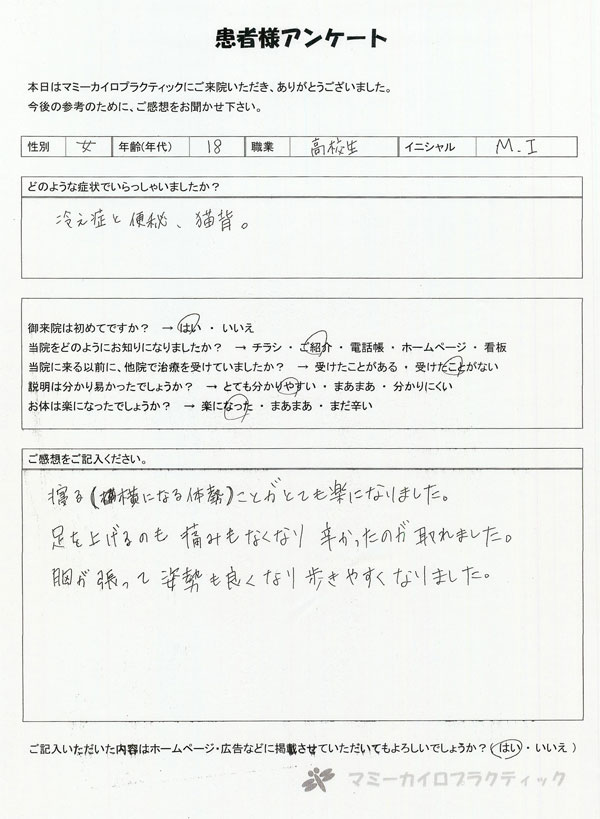 患者様アンケート
本日はマミーカイロプラクティックにご来院いただき、ありがとうございました。
今後の参考のために、ご感想をお聞かせ下さい。
性別 女 年齢(年代) 18 職業 高校生 イニシャル M.I
どのような症状でいらっしゃいましたか?
冷え症と便秘、猫背。
御来院は初めてですか? → はい ・ いいえ
当院をどのようにお知りになりましたか? → チラシ ・ ご紹介 ・ 電話帳 ・ ホームページ ・ 看板
当院に来る以前に、他院で治療を受けていましたか? → 受けたことがある ・ 受けたことがない
説明は分かり易かったでしょうか? → とても分かりやすい ・ まあまあ ・ 分かりにくい
お体は楽になったでしょうか? → 楽になった ・ まあまあ ・ まだ辛い
ご感想をご記入ください。
寝る(横になる体勢)ことがとても楽になりました。
足を上げるのも 痛みもなくなり 辛かったのが 取れました。
胸が張って 姿勢も良くなり 歩きやすくなりました。
ご記入いただいた内容はホームページ・広告などに掲載させていただいてもよろしいでしょうか?( はい ・ いいえ )
マミーカイロプラクティック